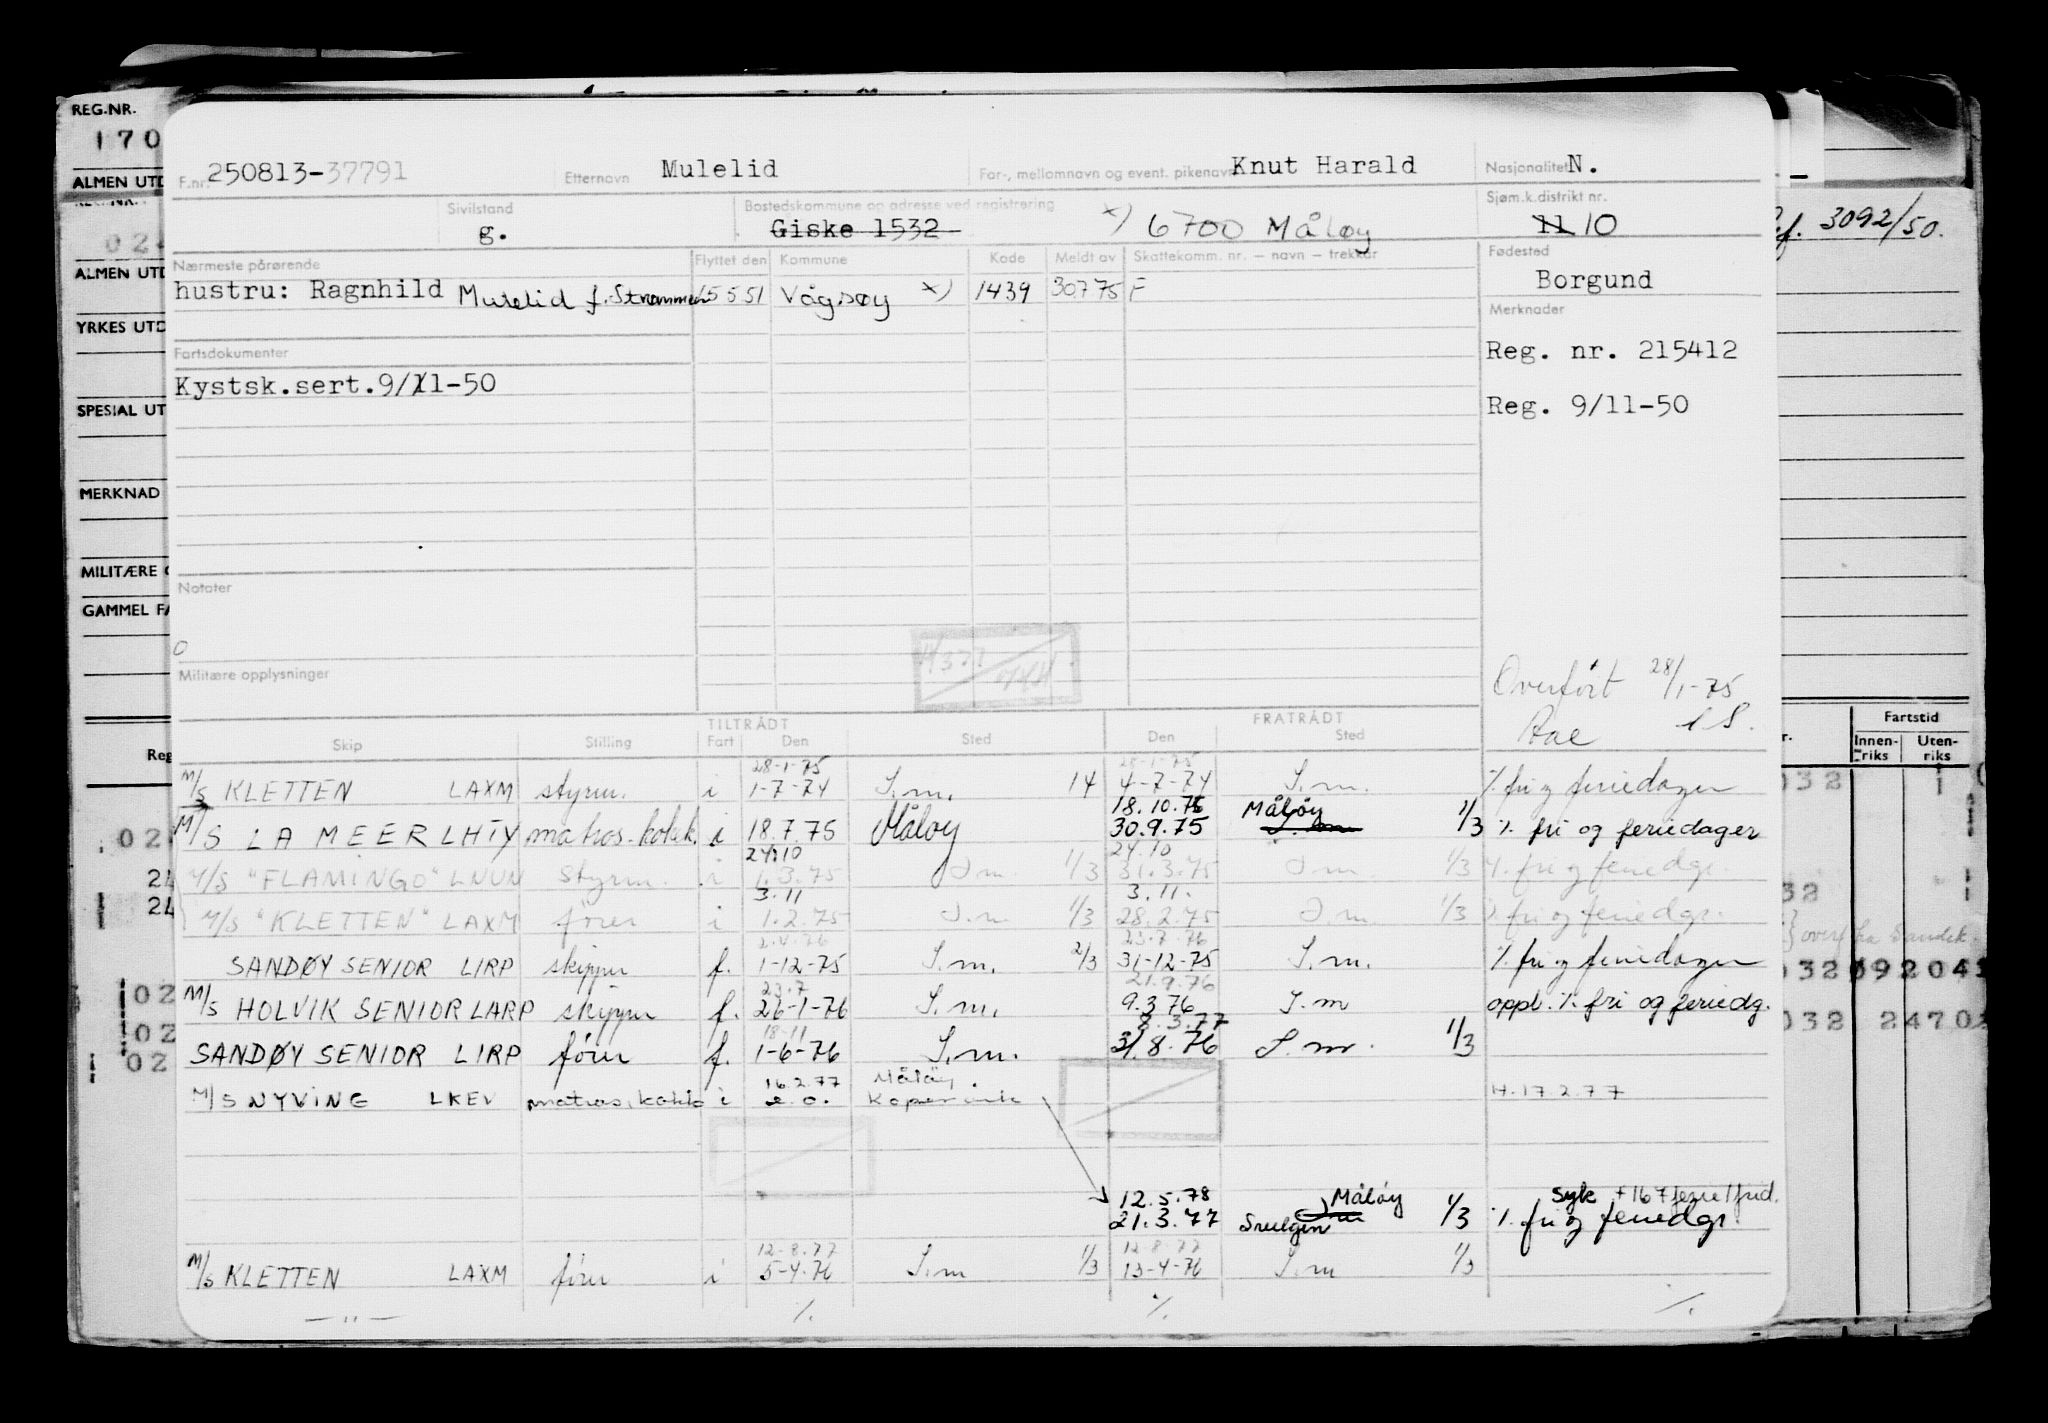 REG.NR.
170
ALMEN UTD
024
ALMEN UTD
YRKES UTD
SPESIAL UT
MERKNAD
MILITÆRE
GAMMEL FA
Reg
3092/50.
Fartstid
Innen-riks Uten-riks
F.nr. 250813-37791 Etternavn Mulelid For-, mellomnavn og event. pikenavn Knut Harald Nasjonalitet N.
Sivilstand Bostedskommune og adresse ved registrering Sjøm.k.distrikt nr.
g. Giske 1532 x) 6700 Måløy 11 10
Nærmeste pårørende Flyttet den Kommune Kode Meldt av Skattekomm. nr. – navn – trekkår Fødested
hustru: Ragnhild Mulelid f. Strømmen 15 5 51 Vågsøy x) 1439 30775 F Borgund
Merknader
Fartsdokumenter Reg. nr. 215412
Kystsk.sert.9/11-50 Reg. 9/11-50
Notater
0
Militære opplysninger
Overført 28/1-75
TILTRÅDT FRATRÅDT
Skip Stilling Fart Den Sted Den Sted
28-1-75
M/S KLETTEN LAXM styrm. i 1-7-74 S.m. 14 4-7-74 S.m. % fri og feriedager
18.10.75 Måløy
M/S LA MEER LHTY matros-kokk. i 18.7.75 Måløy 30.9.75 1/3 % fri og feriedager
24.10 24.10
M/S "FLAMINGO" LNUN Styrm. i 1.3.75 S m. 1/3 31.3.75 S m 1/3 % fri og feriedgr.
3.11 3.11.
M/S "KLETTEN" LAXM fører i 1.2.75 S.m. 1/3 28.2.75 S.m. 1/3 % fri og feriedgr.
23.7.76
SANDØY SENIOR LIRP skipper f. 1-12-75 S.m. 2/3 31-12-75 S.m. % fri og feriedager
23.7 21.9.76
M/S HOLVIK SENIOR LARP skipper f. 26-1-76 S.m. 9.3 76 S.m oppl. % fri og feriedg.
18-11 8.3.77
SANDØY SENIOR LIRP fører f. 1-6-76 S.m. 31.8.76 S.m. 1/3
16.2.77 Måløy
M/S NYVING LKEV matros, kokk i e.o. Kopervik H.17.2.77
12.5.78 Måløy Syk +167 ferie/frid.
21.3.77 1/3 % fri og feriedgr.
12-8.77 12-8-77
M/S KLETTEN LAXM fører i 5-4-76 S.m 1/3 13-4-76 S.m 1/3
—"— % % %